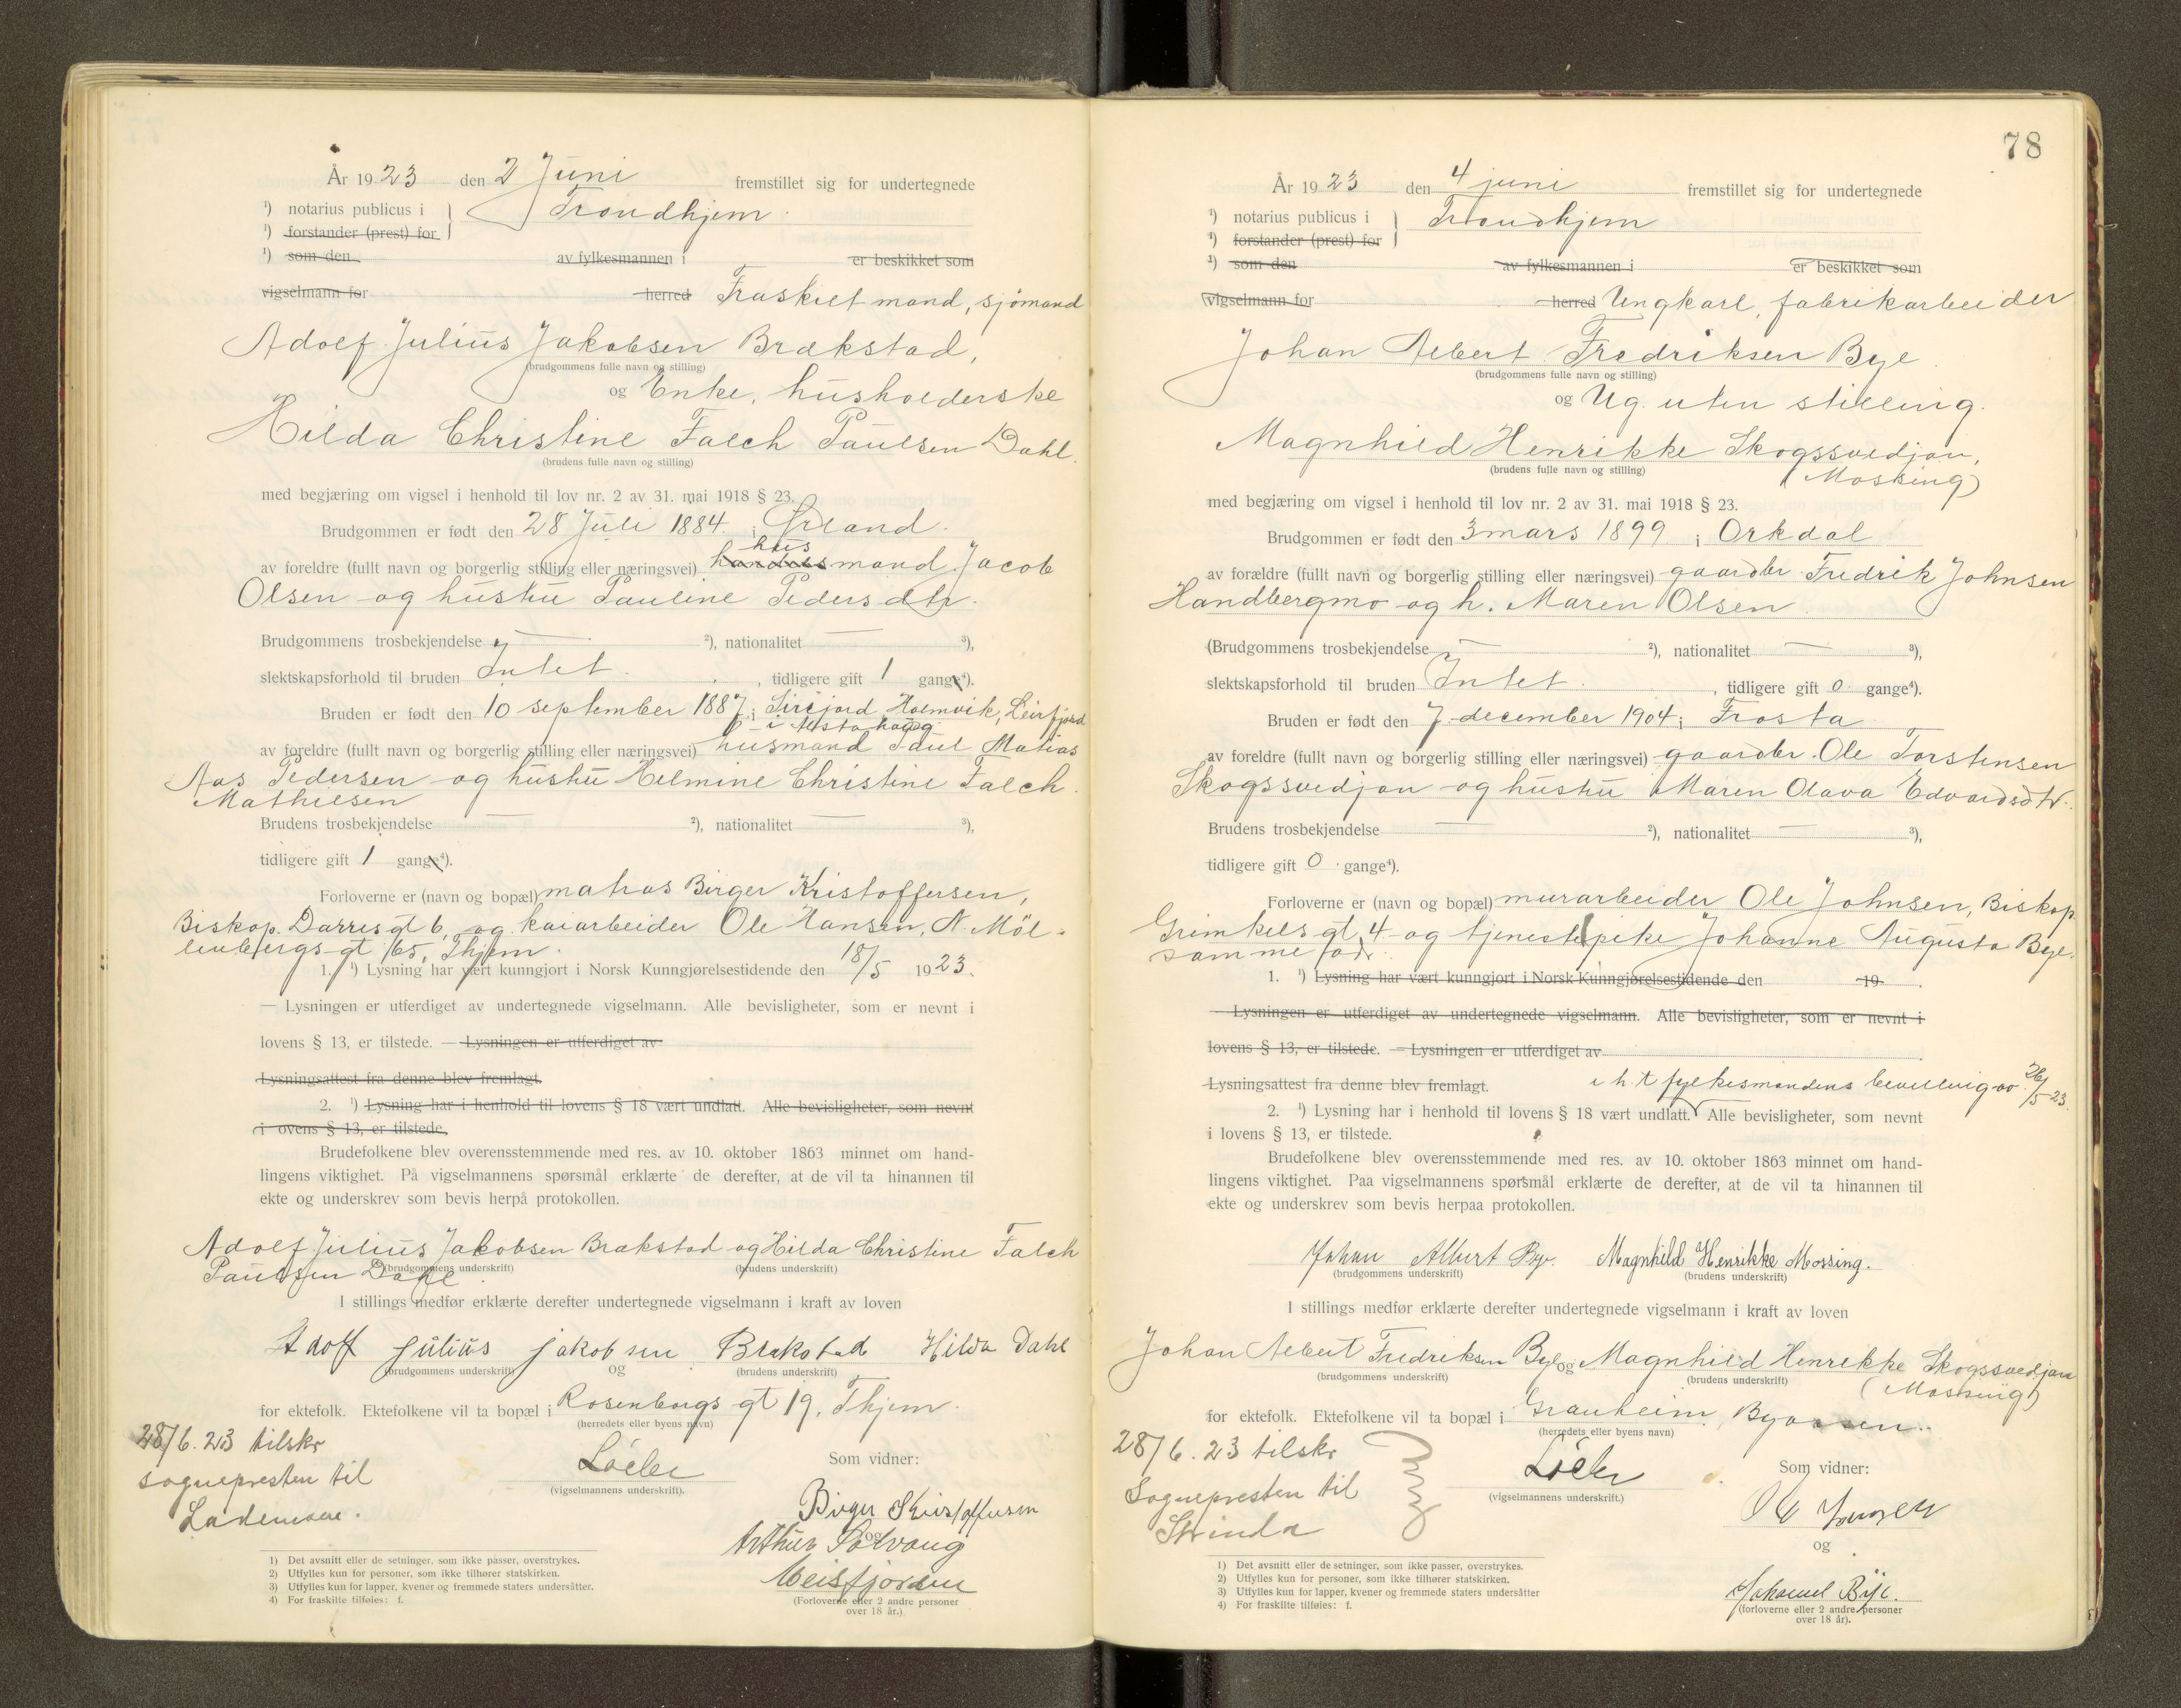 År 1923 den 2 Juni fremstillet sig for undertegnede
¹) notarius publicus i } Trondhjem.
¹) forstander (prest) for
¹) som den av fylkesmannen i er beskikket som
vigselmann for herred Fraskilt mand, sjömand
Adolf Julius Jakobsen Brækstad,
(brudgommens fulle navn og stilling)
og Enke, husholderske
Hilda Christine Falch Paulsen Dahl.
(brudens fulle navn og stilling)
med begjæring om vigsel i henhold til lov nr. 2 av 31. mai 1918 § 23.
Brudgommen er født den 28 Juli 1884. i Ørland.
hus
av foreldre (fullt navn og borgerlig stilling eller næringsvei) mand Jacob
Olsen og hustru Pauline Pedersdtr.
Brudgommens trosbekjendelse — ²), nationalitet — ³),
slektskapsforhold til bruden Intet. , tidligere gift 1 gange⁴).
Bruden er født den 10 september 1887 i Holmvik, Leirfjord
av foreldre (fullt navn og borgerlig stilling eller næringsvei) husmand Paul Matias
Aas Pedersen og hustru Helmine Christine Falch
Mathilsen
Brudens trosbekjendelse — ²), nationalitet — ³),
tidligere gift 1 gange⁴).
Forloverne er (navn og bopæl) matros Birger Kristoffersen,
Biskop Darresgt 6, og kaiarbeider Ole Hansen, N. Möl-
lenbergs gt 65, Thjem.
1. ¹) Lysning har vært kunngjort i Norsk Kunngjørelsestidende den 18/5 1923.
— Lysningen er utferdiget av undertegnede vigselmann. Alle bevisligheter, som er nevnt i
lovens § 13, er tilstede. — Lysningen er utferdiget av
Lysningsattest fra denne blev fremlagt.
2. ¹) Lysning har i henhold til lovens § 18 vært undlatt. Alle bevisligheter, som nevnt
i ovens § 13, er tilstede.
Brudefolkene blev overensstemmende med res. av 10. oktober 1863 minnet om hand-
lingens viktighet. På vigselmannens spørsmål erklærte de derefter, at de vil ta hinannen til
ekte og underskrev som bevis herpå protokollen.
Adolf Julius Jakobsen Brækstad og Hilda Christine Falch
(brudgommens underskrift) (brudens underskrift)
Paulsen Dahl.
I stillings medfør erklærte derefter undertegnede vigselmann i kraft av loven
Adolf Julius Jakobsen Brekstad Hilda Dahl
(brudgommens underskrift) og (brudens underskrift)
for ektefolk. Ektefolkene vil ta bopæl i Rosenborgs gt 19, Thjem.
(herredets eller byens navn)
28/6. 23 tilskr
sognepresten til
Lademoen.
(vigselmannens underskrift).
Som vidner:
Birger Kristoffersen
og
Arthur Solvang
(Forloverne eller 2 andre personer
over 18 år.)
1) Det avsnitt eller de setninger, som ikke passer, overstrykes.
2) Utfylles kun for personer, som ikke tilhører statskirken.
3) Utfylles kun for lapper, kvener og fremmede staters undersåtter.
4) For fraskilte tilføies: f.
78
År 1923 den 4 juni fremstillet sig for undertegnede
¹) notarius publicus i } Trondhjem
¹) forstander (prest) for
¹) som den av fylkesmannen i er beskikket som
vigselmann for herred Ungkarl, fabrikarbeider
Johan Albert Fredriksen Bye
(brudgommens fulle navn og stilling)
og Ug. uten stilling.
Magnhild Henrikke Skogssvedjan,
(brudens fulle navn og stilling)
(Mossing)
med begjæring om vigsel i henhold til lov nr. 2 av 31. mai 1918 § 23.
Brudgommen er født den 3 mars 1899 i Orkdal
av forældre (fullt navn og borgerlig stilling eller næringsvei) gaardbr. Fredrik Johnsen
Handbergmo og h. Maren Olsen.
(Brudgommens trosbekjendelse — ²), nationalitet — ³),
slektskapsforhold til bruden Intet. , tidligere gift 0 gange⁴).
Bruden er født den 7. december 1904 i Frosta
av foreldre (fullt navn og borgerlig stilling eller næringsvei) gaardbr. Ole Torstensen
Skogssvedjan og hustru Maren Olava Edvardsdtr.
Brudens trosbekjendelse — ²), nationalitet — ³),
tidligere gift 0 gange⁴).
Forloverne er (navn og bopæl) murarbeider Ole Johnsen, Biskop
Grimkels gt 4 og tjenestepike Johanne Augusta Bye.
samme adr.
1. ¹) Lysning har vært kunngjort i Norsk Kunngjørelsestidende den 19 .
— Lysningen er utferdiget av undertegnede vigselmann. Alle bevisligheter, som er nevnt i
lovens § 13, er tilstede. — Lysningen er utferdiget av
Lysningsattest fra denne blev fremlagt. i h. t fylkesmandens bevilling av 26/5 23.
2. ¹) Lysning har i henhold til lovens § 18 vært undlatt. Alle bevisligheter, som nevnt
i lovens § 13, er tilstede.
Brudefolkene blev overensstemmende med res. av 10. oktober 1863 minnet om hand-
lingens viktighet. Paa vigselmannens spørsmål erklærte de derefter, at de vil ta hinannen til
ekte og underskrev som bevis herpaa protokollen.
Johan Albert Bye. Magnhild Henrikke Mossing.
(brudgommens underskrift) (brudens underskrift)
I stillings medfør erklærte derefter undertegnede vigselmann i kraft av loven
Johan Albert Fredriksen Bye og Magnhild Henrikke Skogssvedjan
(brudgommens underskrift) (brudens underskrift)
(Mossing)
for ektefolk. Ektefolkene vil ta bopæl i Granheim, Byaasen.
(herredets eller byens navn)
28/6. 23 tilskr
Sognepresten til
Strinda
(vigselmannens underskrift.)
Som vidner:
og
(forloverne eller 2 andre personer
over 18 år).
1) Det avsnitt eller de setninger, som ikke passer, overstrykes.
2) Utfylles kun for personer, som ikke tilhører statskirken.
3) Utfylles kun for lapper, kvener og fremmede staters undersåtter
4) For fraskilte tilføies: f.